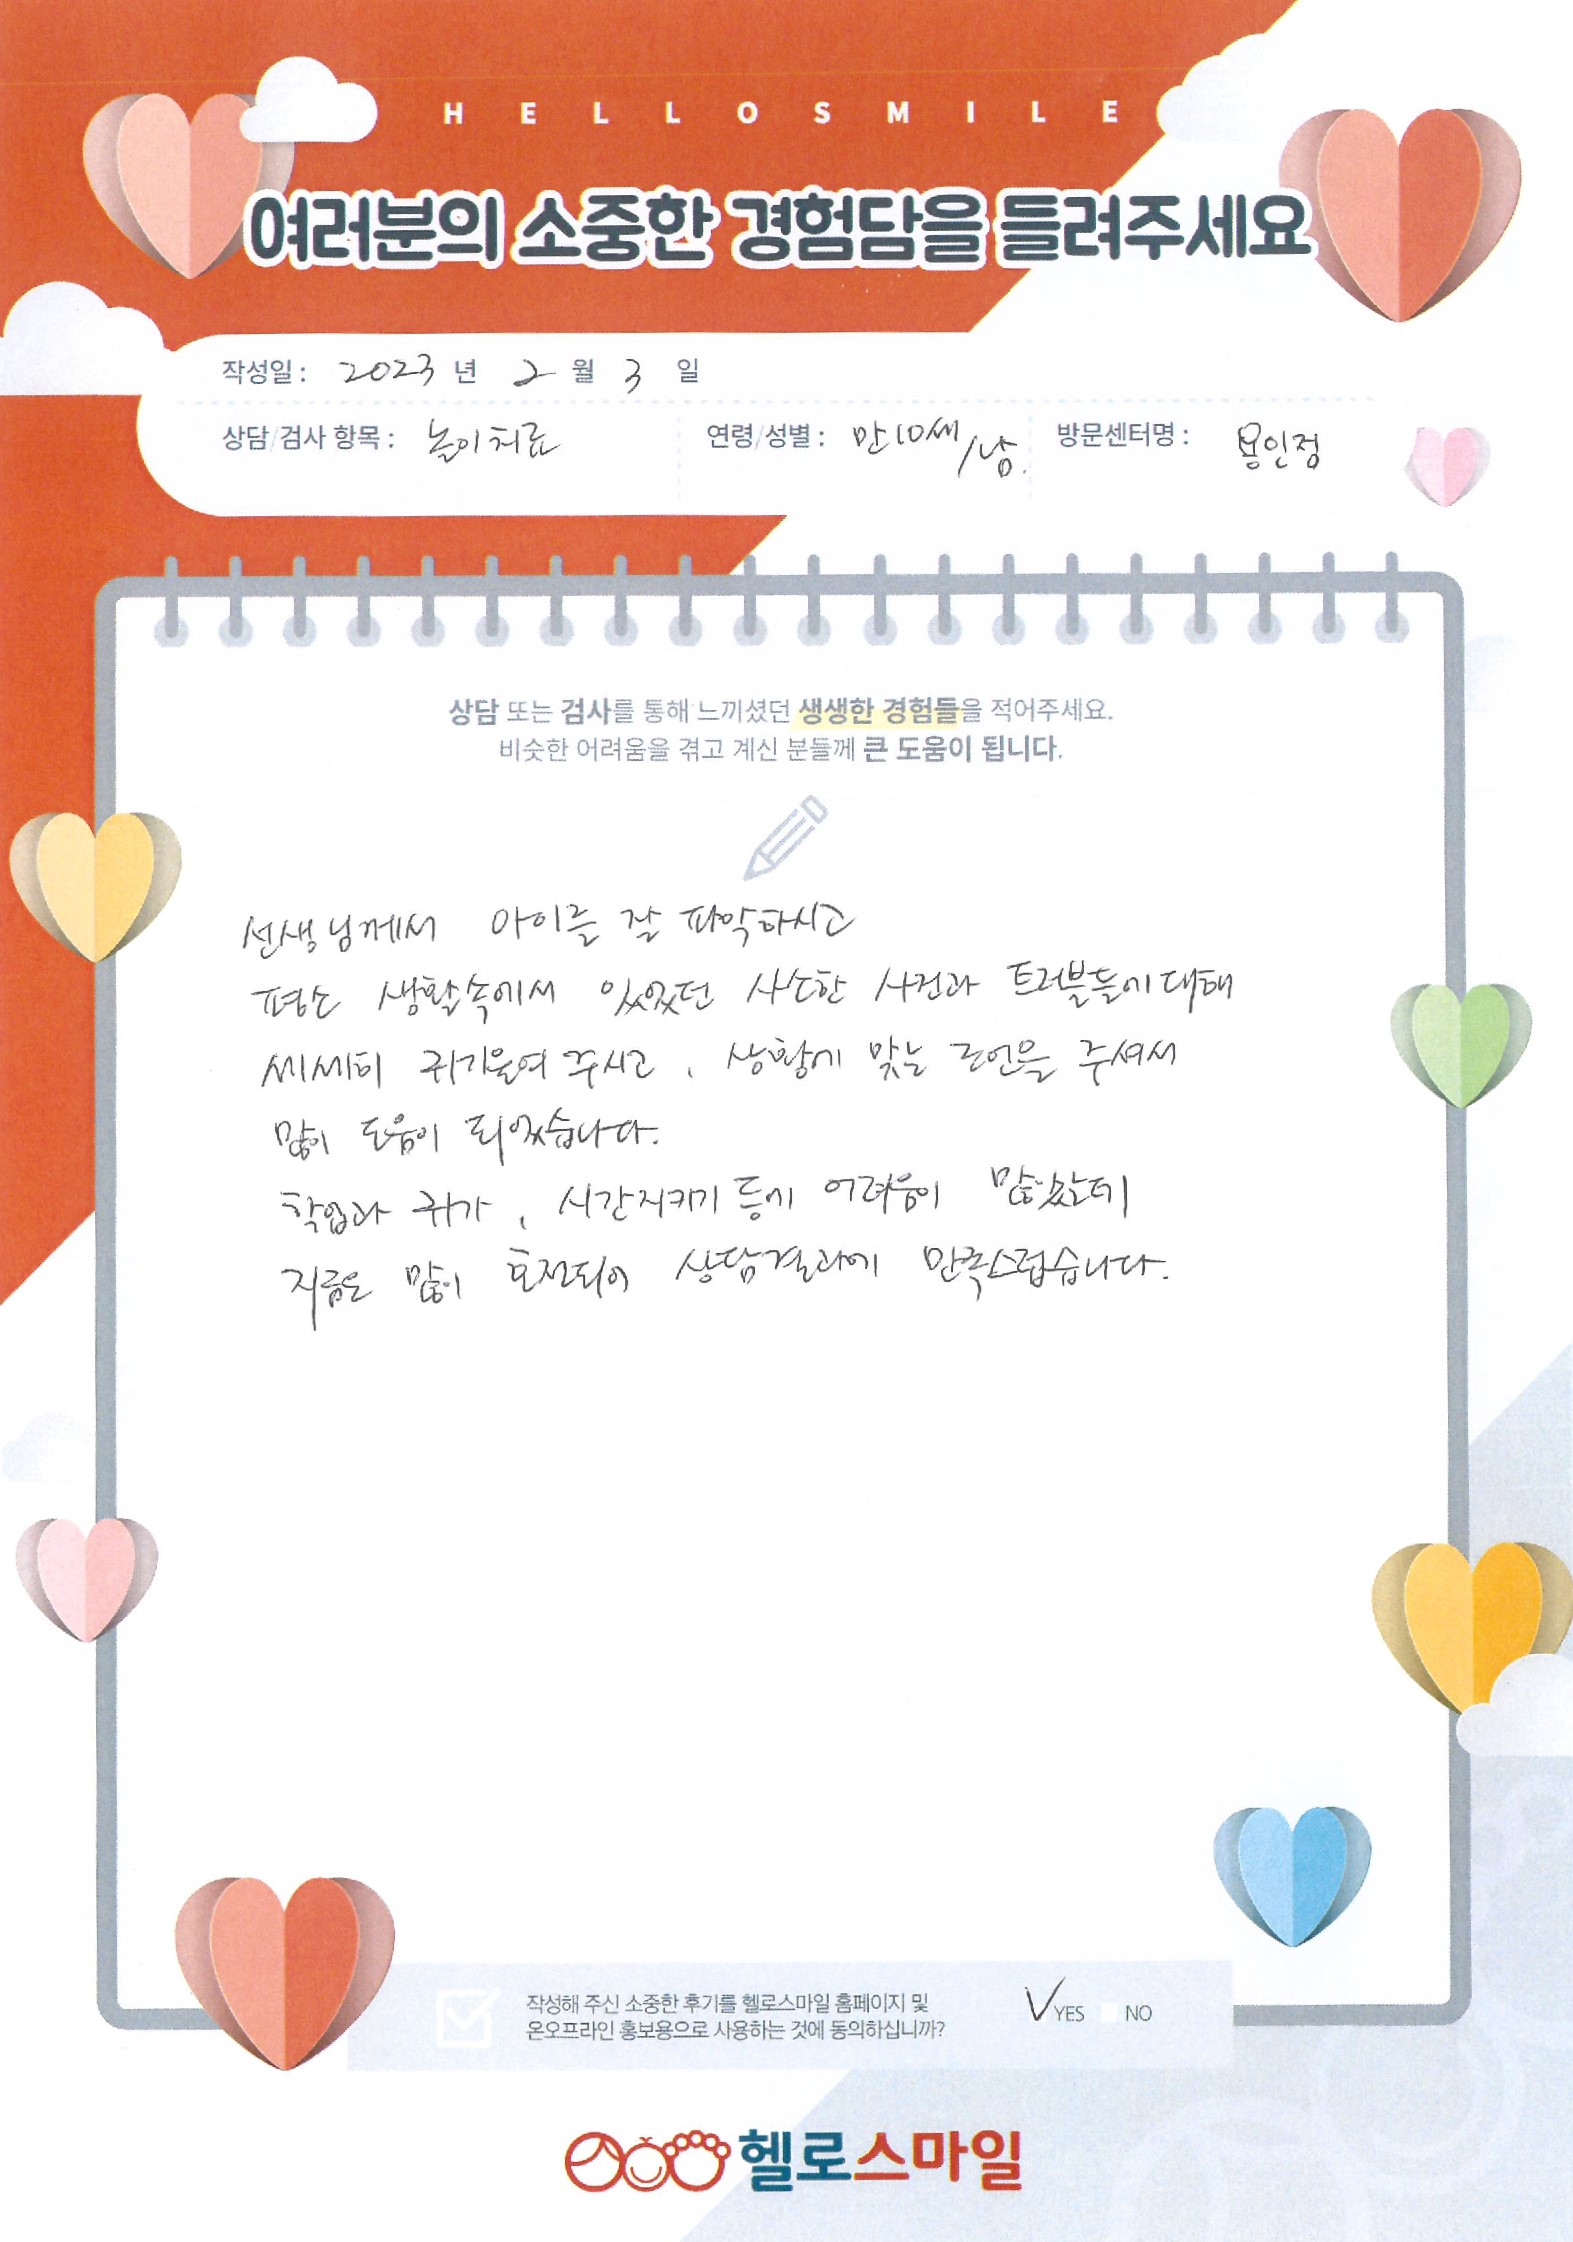 HELLOSMILE
여러분의 소중한 경험담을 들려주세요
작성일 : 2023 년 2 월 3 일
상담/검사 항목 : 놀이치료 연령/성별 : 만10세/남. 방문센터명 : 용인점
상담 또는 검사를 통해 느끼셨던 생생한 경험들을 적어주세요.
비슷한 어려움을 겪고 계신 분들께 큰 도움이 됩니다.
선생님께서 아이를 잘 파악하시고
평소 생활속에서 있었던 사소한 사건과 트러블들에 대해
세세히 귀기울여 주시고, 상황에 맞는 조언을 주셔서
많이 도움이 되었습니다.
학업과 귀가, 시간지키기 등에 어려움이 많았는데
지금은 많이 호전되어 상담결과에 만족스럽습니다.
작성해 주신 소중한 후기를 헬로스마일 홈페이지 및
온오프라인 홍보용으로 사용하는 것에 동의하십니까?
YES NO
헬로스마일